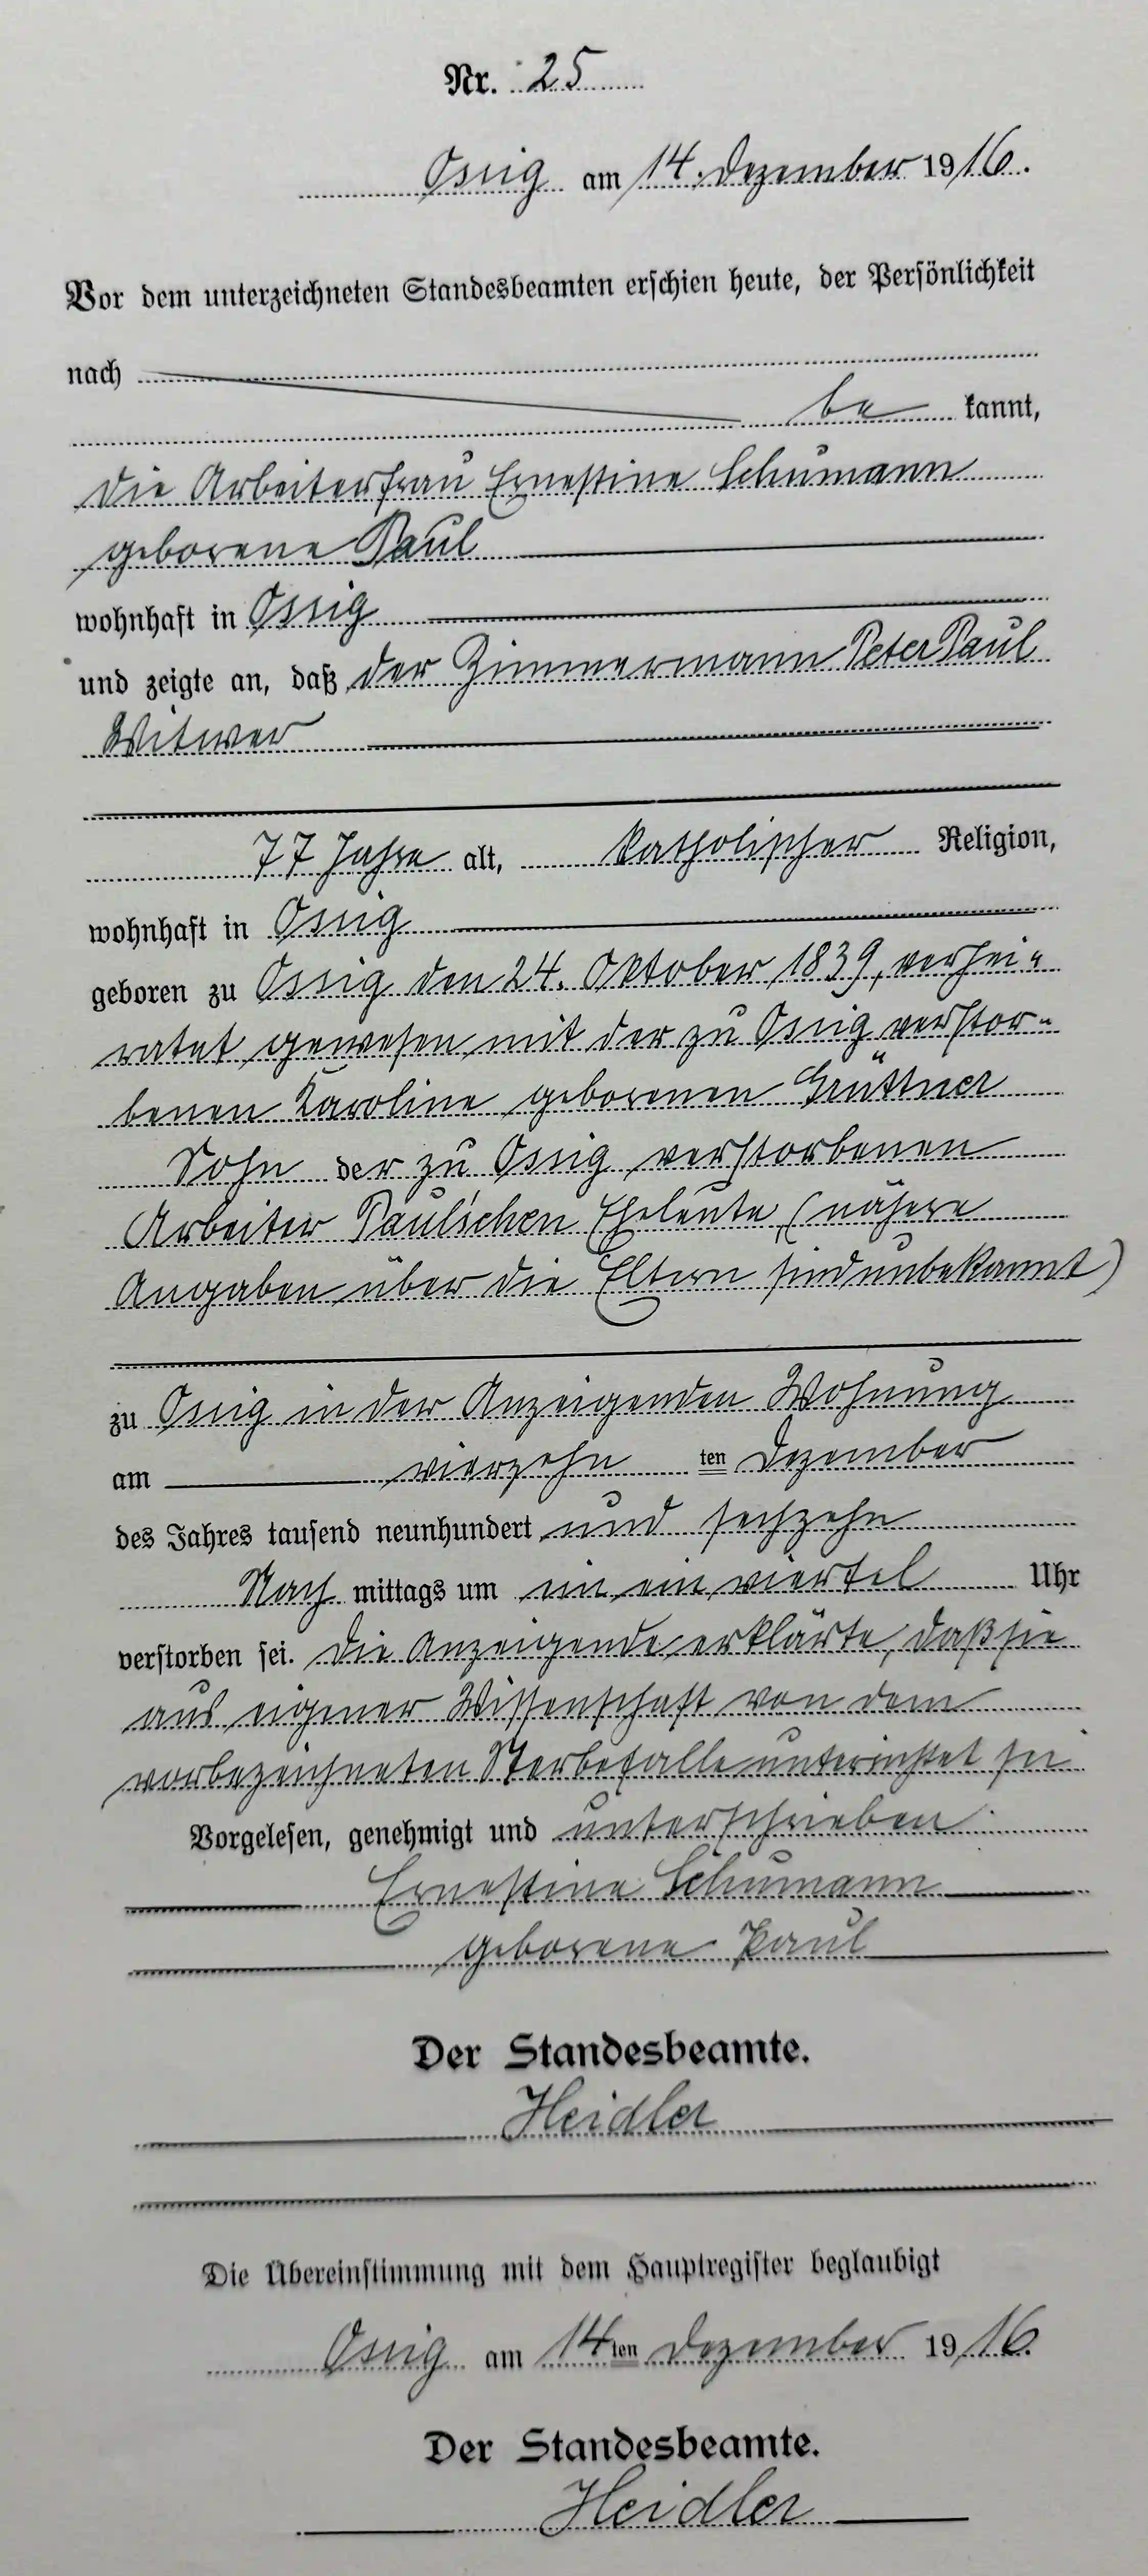 Nr. 25
Ossig am 14. Dezember 1916.
Vor dem unterzeichneten Standesbeamten erschien heute, der Persönlichkeit
nach
be kannt,
die Arbeiterfrau Ernestine Schumann
geborene Paul
wohnhaft in Ossig
und zeigte an, daß der Zimmermann Peter Paul
Witwer
77 Jahre alt, katholischer Religion,
wohnhaft in Ossig
geboren zu Ossig den 24. Oktober 1839, verhei-
ratet gewesen mit der zu Ossig verstor-
benen Karoline geborenen Grüttner
Sohn der zu Ossig verstorbenen
Arbeiter Paul'schen Eheleute, (nähere
Angaben über die Eltern sind unbekannt)
zu Ossig in der Anzeigenden Wohnung
am vierzehn ten Dezember
des Jahres tausend neunhundert und sechzehn
Nach mittags um ein viertel Uhr
verstorben sei. Die Anzeigende erklärte, daß sie
aus eigener Wissenschaft von dem
vorbezeichneten Sterbefalle unterrichtet sei
Vorgelesen, genehmigt und unterschrieben
Ernestine Schumann
geborene Paul
Der Standesbeamte.
Heidler
Die Übereinstimmung mit dem Hauptregister beglaubigt
Ossig am 14ten Dezember 1916.
Der Standesbeamte.
Heidler